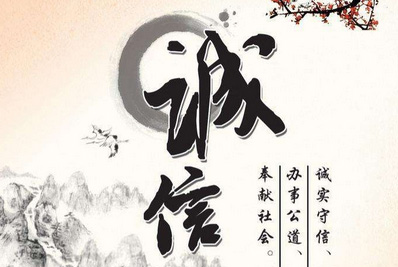 诚信
诚实守信、
办事公道、
奉献社会。